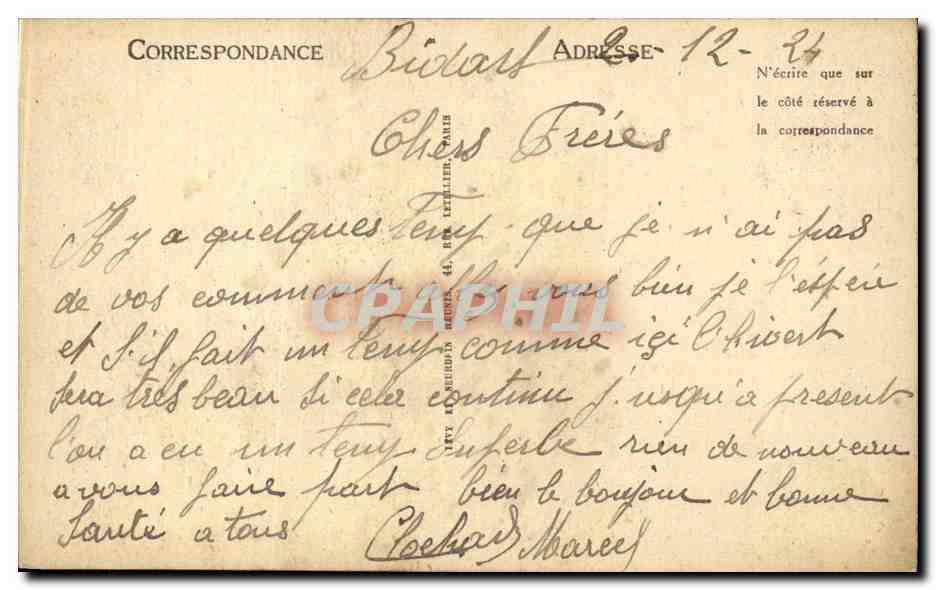 CORRESPONDANCE
ADRESSE
Bidart 2-12-24
N'écrire que sur
le côté réservé à
la correspondance
Chers Fréres
Il y a quelques Temp que je n'ai pas
de vos comment vous bien je l'espére
et s'il fait un Temp comme içi l'hivert
sera très beau si cela continu j'usqu'a present
l'on a eu un temp superbe rien de nouveau
a vous faire part bien le bonjour et bonne
Santé a tous
Marcel
LÉVY ET NEURDEIN RÉUNIS, 44, RUE LETELLIER, PARIS
CPAPHIL